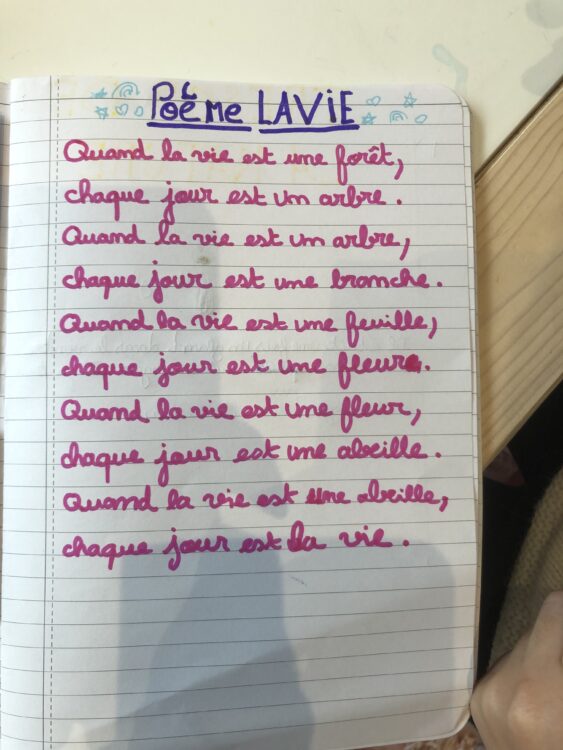 Poème LA VIE
Quand la vie est une forêt,
chaque jour est un arbre.
Quand la vie est un arbre,
chaque jour est une branche.
Quand la vie est une feuille,
chaque jour est une fleur.
Quand la vie est une fleur,
chaque jour est une abeille.
Quand la vie est une abeille,
chaque jour est la vie.